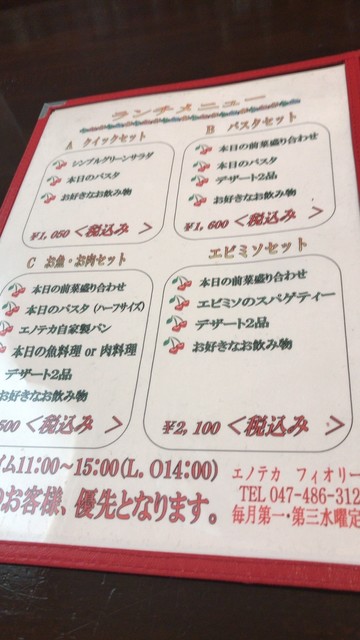 ランチメニュー
A クイックセット
シンプルグリーンサラダ
本日のパスタ
お好きなお飲み物
¥1,050<税込み>
B パスタセット
本日の前菜盛り合わせ
本日のパスタ
デザート2品
お好きなお飲み物
¥1,600<税込み>
C お魚・お肉セット
本日の前菜盛り合わせ
本日のパスタ (ハーフサイズ)
エノテカ自家製パン
本日の魚料理 or 肉料理
デザート2品
お好きなお飲み物
600<税込み>
エビミソセット
本日の前菜盛り合わせ
エビミソのスパゲティー
デザート2品
お好きなお飲み物
¥2,100<税込み>
イム11:00~15:00(L. O14:00)
のお客様、優先となります。
エノテカ フィオリー
TEL 047-486-312
毎月第一・第三水曜定